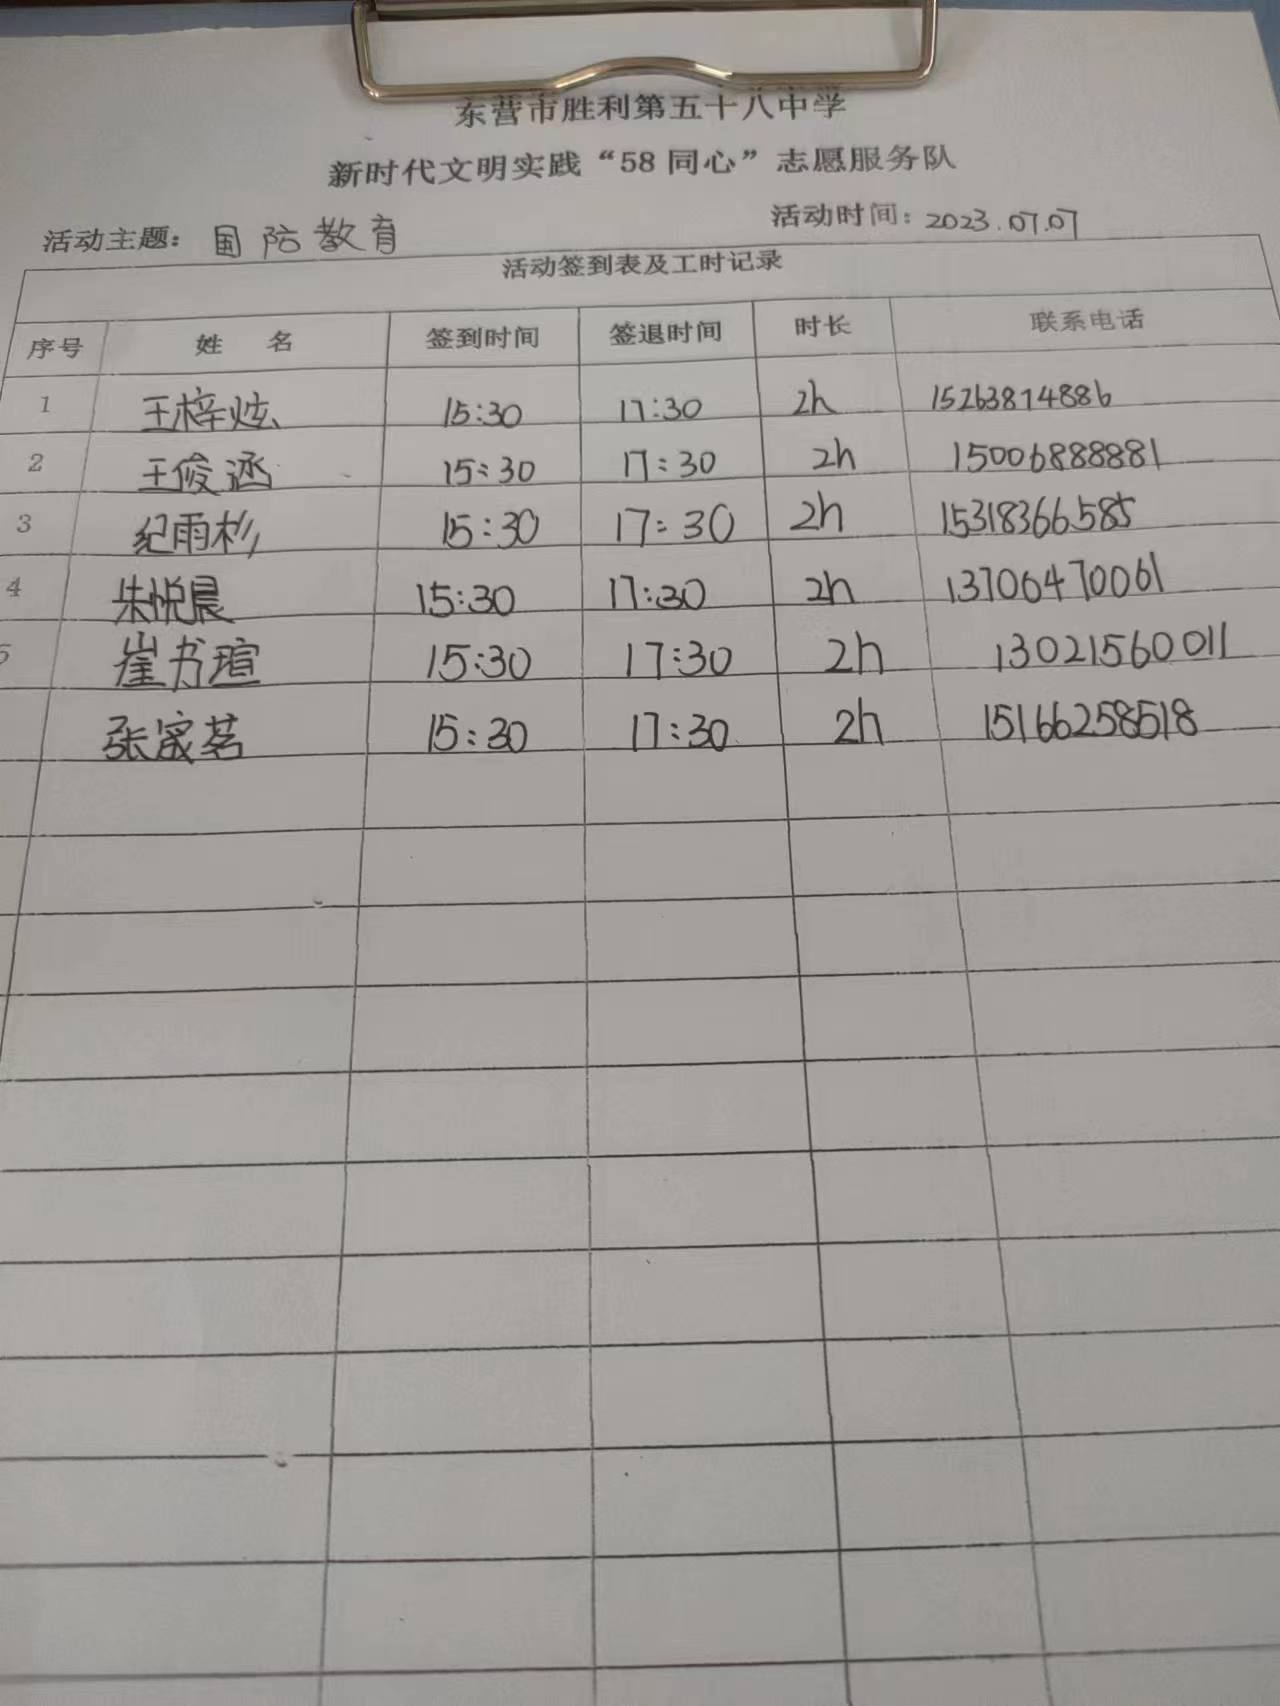 东营市胜利第五十八中学
新时代文明实践“58同心”志愿服务队
活动主题：国防教育 活动时间：2023.07.07
活动签到表及工时记录
序号 姓 名 签到时间 签退时间 时长 联系电话
1 王梓炫 15:30 17:30 2h 15263814886
2 王俊涵 15:30 17:30 2h 15006888881
3 纪雨杉 15:30 17:30 2h 15318366585
4 朱悦晨 15:30 17:30 2h 13706470061
5 崔书瑄 15:30 17:30 2h 13021560011
张宬茗 15:30 17:30 2h 15166258518